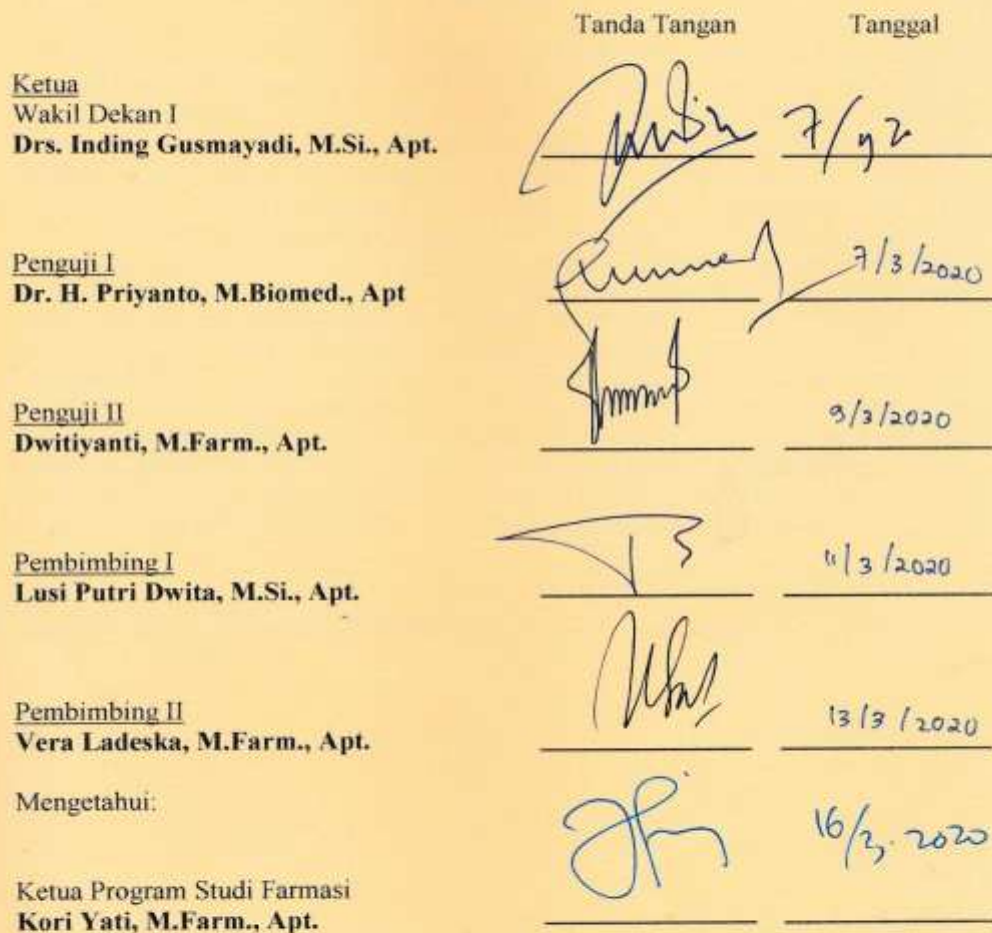 Tanda Tangan Tanggal
Ketua
Wakil Dekan I
Drs. Inding Gusmayadi, M.Si., Apt.
Penguji I
Dr. H. Priyanto, M.Biomed., Apt 7/3/2020
Penguji II
Dwitiyanti, M.Farm., Apt. 9/3/2020
Pembimbing I
Lusi Putri Dwita, M.Si., Apt. 11/3/2020
Pembimbing II
Vera Ladeska, M.Farm., Apt. 13/3/2020
Mengetahui:
Ketua Program Studi Farmasi
Kori Yati, M.Farm., Apt.